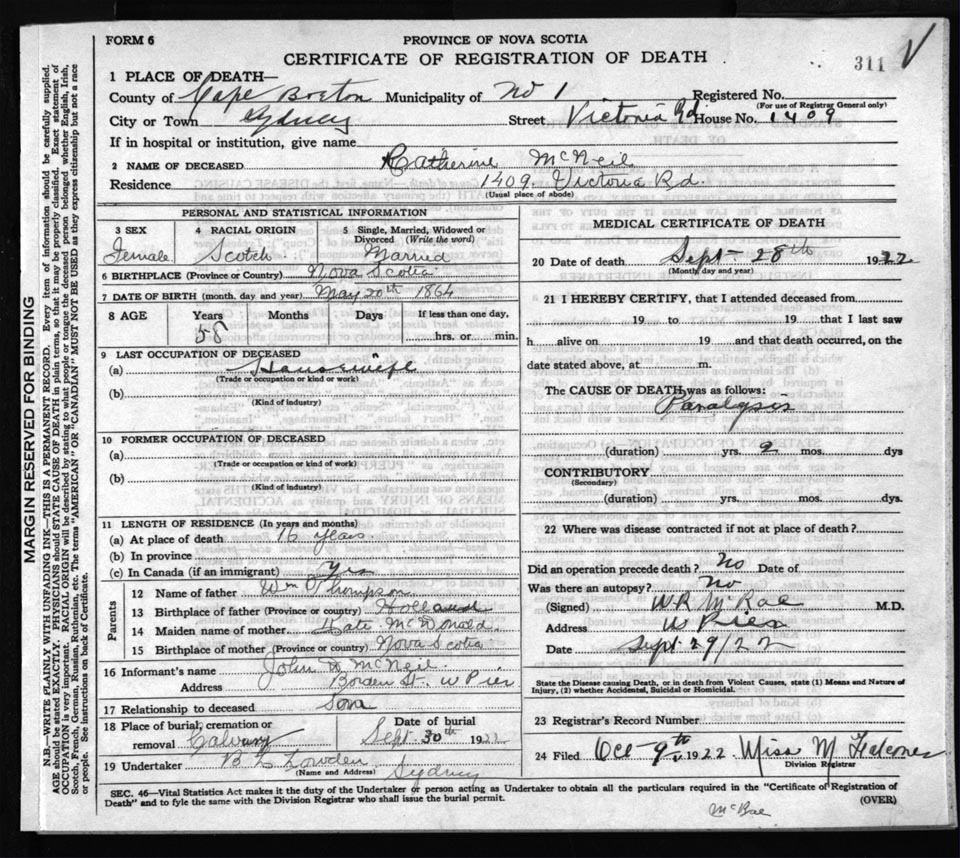 FORM 6
PROVINCE OF NOVA SCOTIA
CERTIFICATE OF REGISTRATION OF DEATH
311
1 PLACE OF DEATH—
County of Cape Breton Municipality of No 1 Registered No.
(For use of Registrar General only)
City or Town Sydney Street Victoria Rd House No. 1409
If in hospital or institution, give name
2 NAME OF DECEASED Catherine McNeil
Residence 1409 Victoria Rd.
(Usual place of abode)
PERSONAL AND STATISTICAL INFORMATION
3 SEX 4 RACIAL ORIGIN 5 Single, Married, Widowed or
Divorced (Write the word)
Female Scotch Married
6 BIRTHPLACE (Province or Country) Nova Scotia
7 DATE OF BIRTH (month, day and year) May 20th 1864
8 AGE Years Months Days If less than one day,
58 hrs. or min.
9 LAST OCCUPATION OF DECEASED
(a) Housewife
(Trade or occupation or kind or work)
(b)
(Kind of industry)
10 FORMER OCCUPATION OF DECEASED
(a)
(Trade or occupation or kind or work)
(b)
(Kind of industry)
11 LENGTH OF RESIDENCE (In years and months)
(a) At place of death 16 years
(b) In province
(c) In Canada (if an immigrant) Yes
Parents
12 Name of father Wm Thompson
13 Birthplace of father (Province or country) Holland
14 Maiden name of mother Kate McDonald
15 Birthplace of mother (Province or country) Nova Scotia
16 Informant's name John D McNeil
Address Borden St. W Pier
17 Relationship to deceased Son
18 Place of burial, cremation or Date of burial
removal Calvary Sept. 30th 1922
19 Undertaker B L Lowden
(Name and Address) Sydney
MEDICAL CERTIFICATE OF DEATH
20 Date of death Sept 28th 1922
(Month, day and year)
21 I HEREBY CERTIFY, that I attended deceased from
19 to 19 that I last saw
h alive on 19 and that death occurred, on the
date stated above, at m.
The CAUSE OF DEATH was as follows:
Paralysis
(duration) yrs. 2 mos. dys
CONTRIBUTORY
(Secondary)
(duration) yrs. mos. dys.
22 Where was disease contracted if not at place of death?
Did an operation precede death? No Date of
Was there an autopsy? No
(Signed) W R McRae M.D.
Address W Pier
Date Sept 29/22
State the Disease causing Death, or in death from Violent Causes, state (1) Means and Nature of
Injury, (2) whether Accidental, Suicidal or Homicidal.
23 Registrar's Record Number
24 Filed Oct 9th 1922 Miss M Falconer
Division Registrar
SEC. 46—Vital Statistics Act makes it the duty of the Undertaker or person acting as Undertaker to obtain all the particulars required in the "Certificate of Registration of
Death" and to fyle the same with the Division Registrar who shall issue the burial permit. (OVER)
McRae
MARGIN RESERVED FOR BINDING
N.B.—WRITE PLAINLY WITH UNFADING INK—THIS IS A PERMANENT RECORD. Every item of information should be carefully supplied.
AGE should be stated EXACTLY. PHYSICIANS should STATE CAUSE OF DEATH in plain terms, so that it may be properly classified. Exact statement of
OCCUPATION is very important. RACIAL ORIGIN will be described by stating to what people or tongue the deceased person belonged whether English, Irish,
Scotch, French, German, Russian, Ruthenian, etc. The terms "AMERICAN" OR "CANADIAN" MUST NOT BE USED as they express citizenship but not a race
or people. See instructions on back of Certificate.